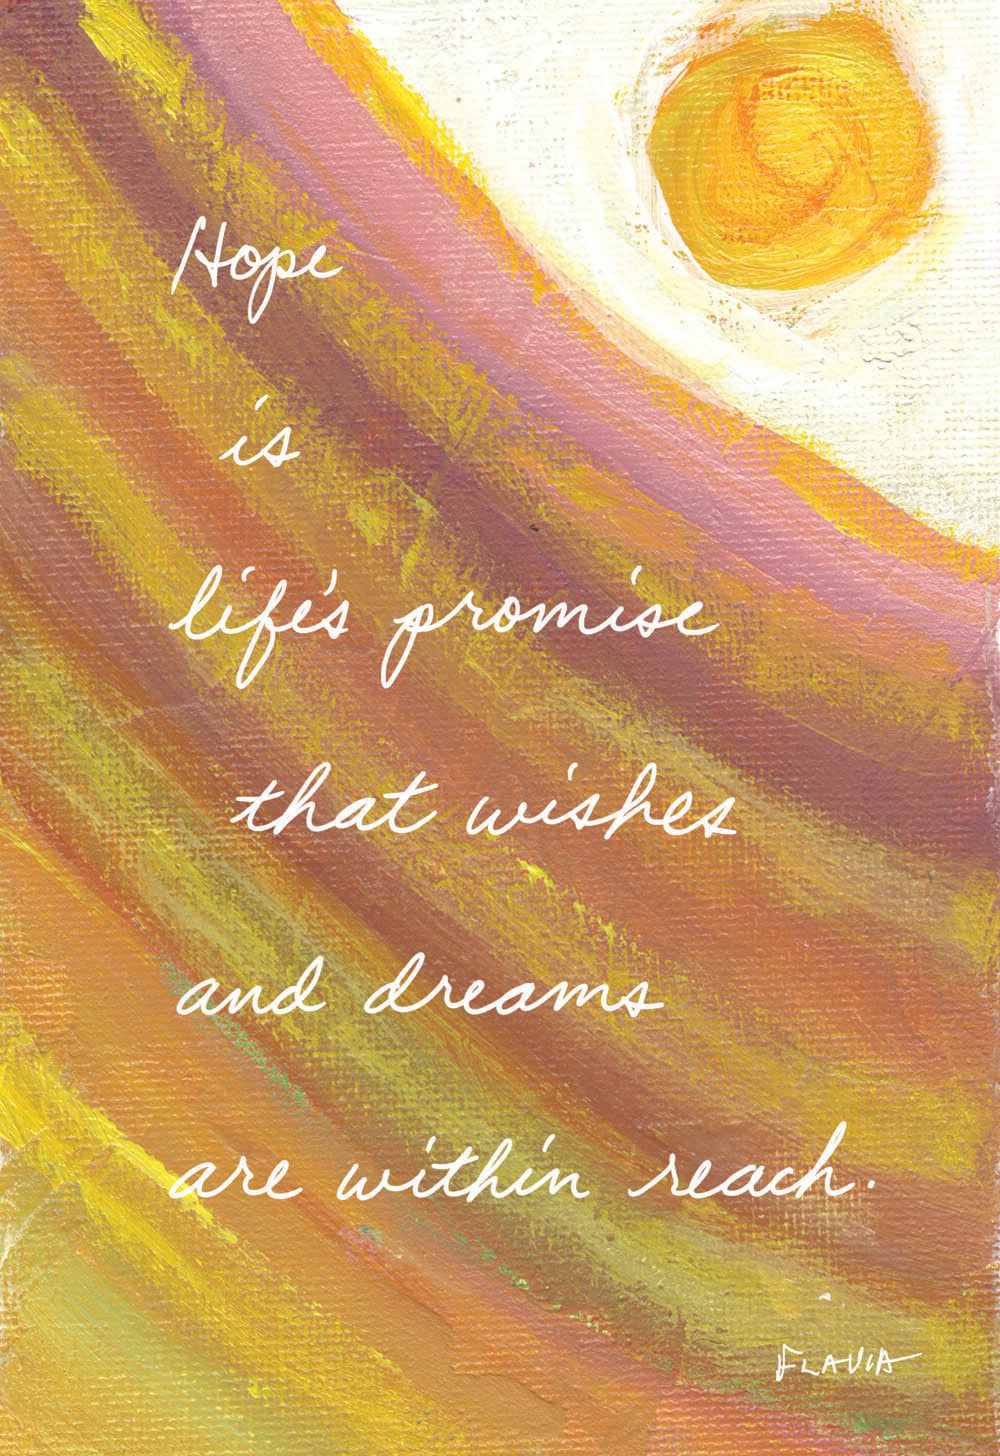 Hope
is
life's promise
that wishes
and dreams
are within reach.
FLAVIA